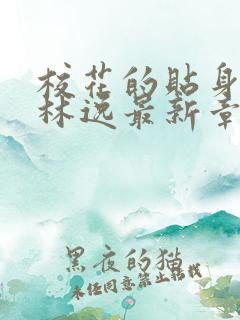 校花的貼身
林逸最新章
黑夜的猫
未经同意禁止转载